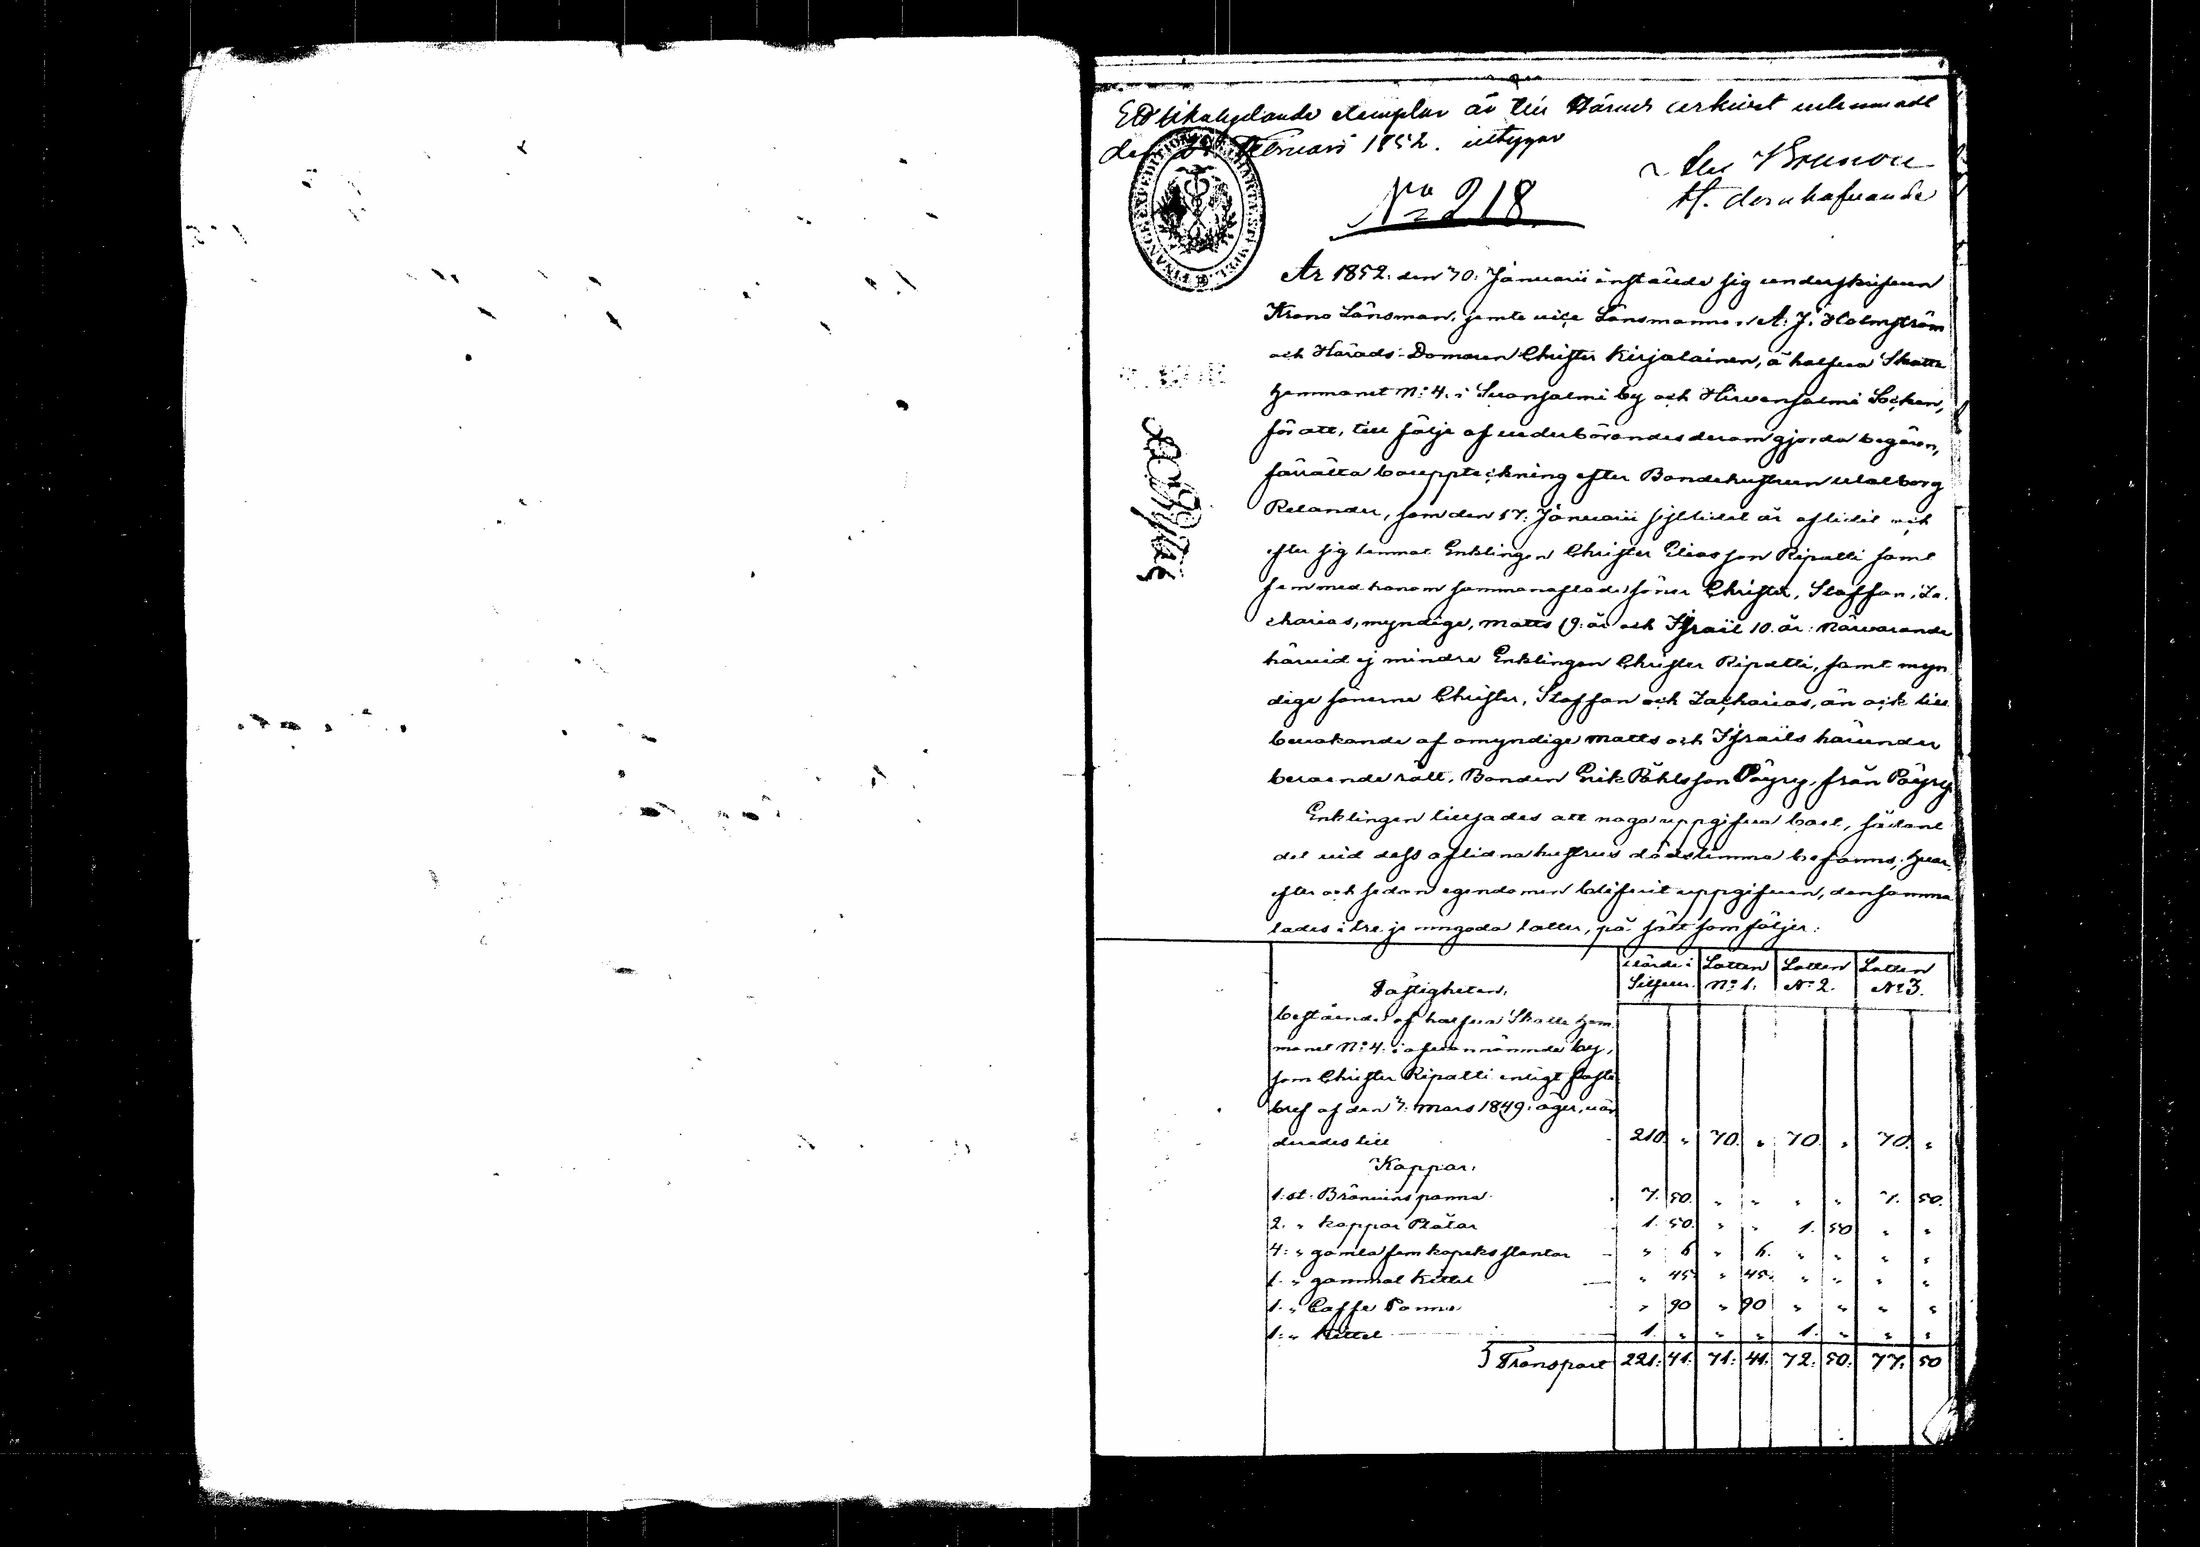 Ett likalydande exemplar är till Härads arkivet inlemnadt
den Februari 1852. intygar
N:o 218
År 1852. den 30. Januarii inställde sig underskrifven
Krono Länsman, jemte vice Länsmannen A. J. Holmström
och Härads-Domaren Christer Kirjalainen, å halfva Skatte
Hemmanet N:o 4. i Suonsalmi by och Hirvensalmi Socken,
för att, till följe af vederbörandes derom gjorda begäran,
förrätta bouppteckning efter Bondehustrun Walborg
Relander, som den 17. Januarii sistlidet år aflidit och
efter sig lemnat Enklingen Christer Eliasson Ripatti samt
fem med honom sammanaflade söner Christer, Staffan, Za-
charias, myndige, Matts 19. år och Israël 10. år. Närvarande
härvid ej mindre Enklingen Christer Ripatti, samt myn-
dige sönerne Christer, Staffan och Zacharias, än ock till
bevakande af omyndige Matts och Israëls härunder
beroende rätt, Bonden Erik Påhlsson Päyry, från Päyry.
Enklingen tillsades att noga uppgifva boet, sådant
det vid dess aflidna hustrus dödstimma befanns; hvar-
efter och sedan egendomen blifvit uppgifven, densamma
lades i tre jemngoda lotter, på sätt som följer:
Fastigheten. Värde i Silfver. Lotten N:o 1. Lotten N:o 2. Lotten N:o 3.
bestående af halfva Skatte Hem-
manet N:o 4. i ofvannämnde by,
som Christer Ripatti enligt faste
bref af den 7. Mars 1849. äger, vär-
derades till 210. „ 70. „ 70. „ 70. „
Koppar.
1. st. Brännvins panna 7. 50. „ „ „ „ 7. 50.
2. „ koppar Plåtar 1. 50. „ „ 1. 50 „ „
4. „ gamla fem kopeks slantar „ 6 „ 6. „ „ „ „
1. „ gammal kittel „ 45 „ 45. „ „ „ „
1. „ Caffe Panna „ 90 „ 90 „ „ „ „
1. „ Kittel 1. „ „ „ 1. „ „ „
Transport 221. 41. 71. 41. 72. 50. 77. 50